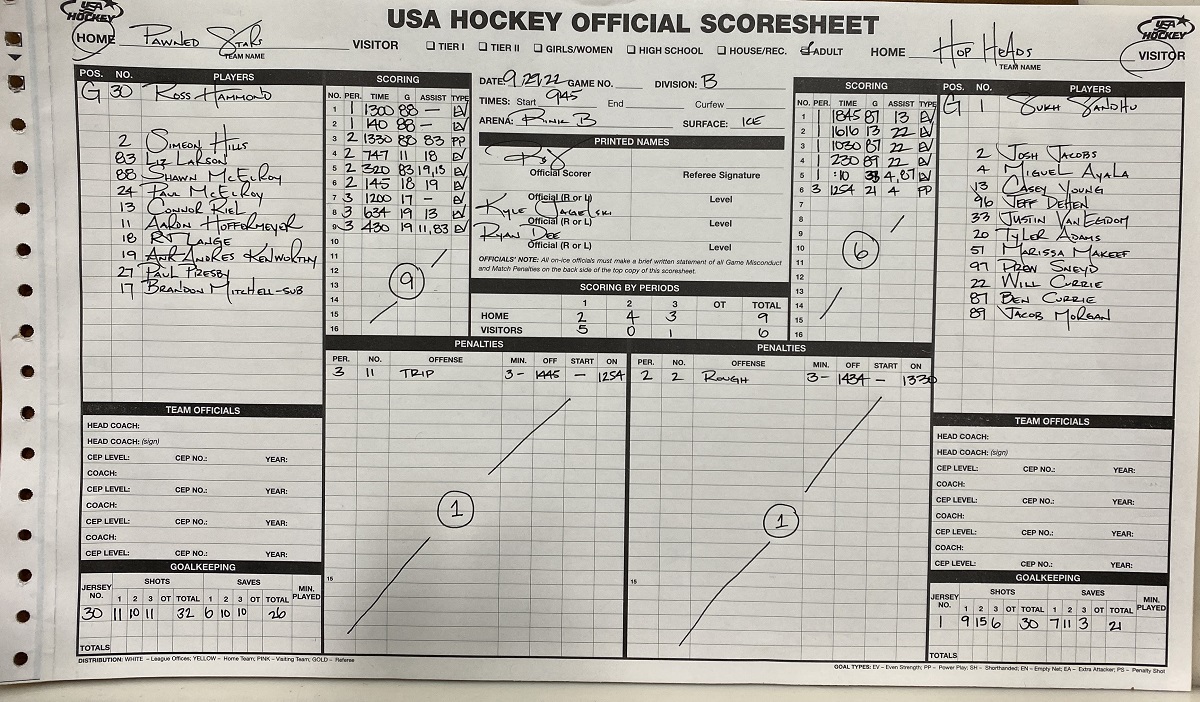 USA HOCKEY OFFICIAL SCORESHEET
USA HOCKEY
USA HOCKEY
HOME Pawned Stars VISITOR
TEAM NAME
☐ TIER I ☐ TIER II ☐ GIRLS/WOMEN ☐ HIGH SCHOOL ☐ HOUSE/REC. ☑ ADULT
HOME Hop Heads VISITOR
TEAM NAME
POS. NO. PLAYERS
G 30 Ross Hammond
2 Simeon Hills
83 Liz Larson
88 Shawn McElroy
24 Paul McElroy
13 Connor Riel
11 Aaron Hoffermeyer
18 RJ Lange
19 Andres Kenworthy
27 Paul Presby
17 Brandon Mitchell-Sub
SCORING
NO. PER. TIME G ASSIST TYPE
1 1 1300 88 — EV
2 1 140 88 — EV
3 2 1330 88 83 PP
4 2 747 11 18 EV
5 2 320 83 19,13 EV
6 2 145 18 19 EV
7 3 1200 17 - EV
8 3 634 19 13 EV
9 3 430 19 11,83 EV
10
11
12
13
14
15
16
9
DATE 9/29/22 GAME NO. DIVISION: B
TIMES: Start 945 End Curfew
ARENA: Rink B SURFACE: ICE
PRINTED NAMES
Official Scorer Referee Signature
Official (R or L) Level
Kyle
Official (R or L) Level
Ryan Dee
Official (R or L) Level
OFFICIALS' NOTE: All on-ice officials must make a brief written statement of all Game Misconduct
and Match Penalties on the back side of the top copy of this scoresheet.
SCORING BY PERIODS
1 2 3 OT TOTAL
HOME 2 4 3 9
VISITORS 5 0 1 6
SCORING
NO. PER. TIME G ASSIST TYPE
1 1 1845 87 13 EV
2 1 1616 13 22 EV
3 1 1030 87 22 EV
4 1 230 89 22 EV
5 1 :10 33 4,87 EV
6 3 1254 21 4 PP
7
8
9
10
11
12
13
14
15
16
6
POS. NO. PLAYERS
G 1 Sukh Sandhu
2 Josh Jacobs
4 Miguel Ayala
13 Casey Young
96 Jeff Dehen
33 Justin Van Egdom
20 Tyler Adams
51 Marissa Makeef
97 Sneyd
22 Will Currie
87 Ben Currie
89 Jacob Morgan
PENALTIES
PER. NO. OFFENSE MIN. OFF START ON
3 11 TRIP 3- 1445 — 1254
1
15
PENALTIES
PER. NO. OFFENSE MIN. OFF START ON
2 2 Rough 3- 1434 — 1330
1
15
TEAM OFFICIALS
HEAD COACH:
HEAD COACH: (sign)
CEP LEVEL: CEP NO.: YEAR:
COACH:
CEP LEVEL: CEP NO.: YEAR:
COACH:
CEP LEVEL: CEP NO.: YEAR:
COACH:
CEP LEVEL: CEP NO.: YEAR:
GOALKEEPING
JERSEY NO. SHOTS SAVES MIN. PLAYED
1 2 3 OT TOTAL 1 2 3 OT TOTAL
30 11 10 11 32 6 10 10 26
TOTALS
TEAM OFFICIALS
HEAD COACH:
HEAD COACH: (sign)
CEP LEVEL: CEP NO.: YEAR:
COACH:
CEP LEVEL: CEP NO.: YEAR:
COACH:
CEP LEVEL: CEP NO.: YEAR:
COACH:
CEP LEVEL: CEP NO.: YEAR:
GOALKEEPING
JERSEY NO. SHOTS SAVES MIN. PLAYED
1 2 3 OT TOTAL 1 2 3 OT TOTAL
1 9 15 6 30 7 11 3 21
TOTALS
DISTRIBUTION: WHITE – League Offices; YELLOW – Home Team; PINK – Visiting Team; GOLD – Referee
GOAL TYPES: EV – Even Strength; PP – Power Play; SH – Shorthanded; EN – Empty Net; EA – Extra Attacker; PS – Penalty Shot